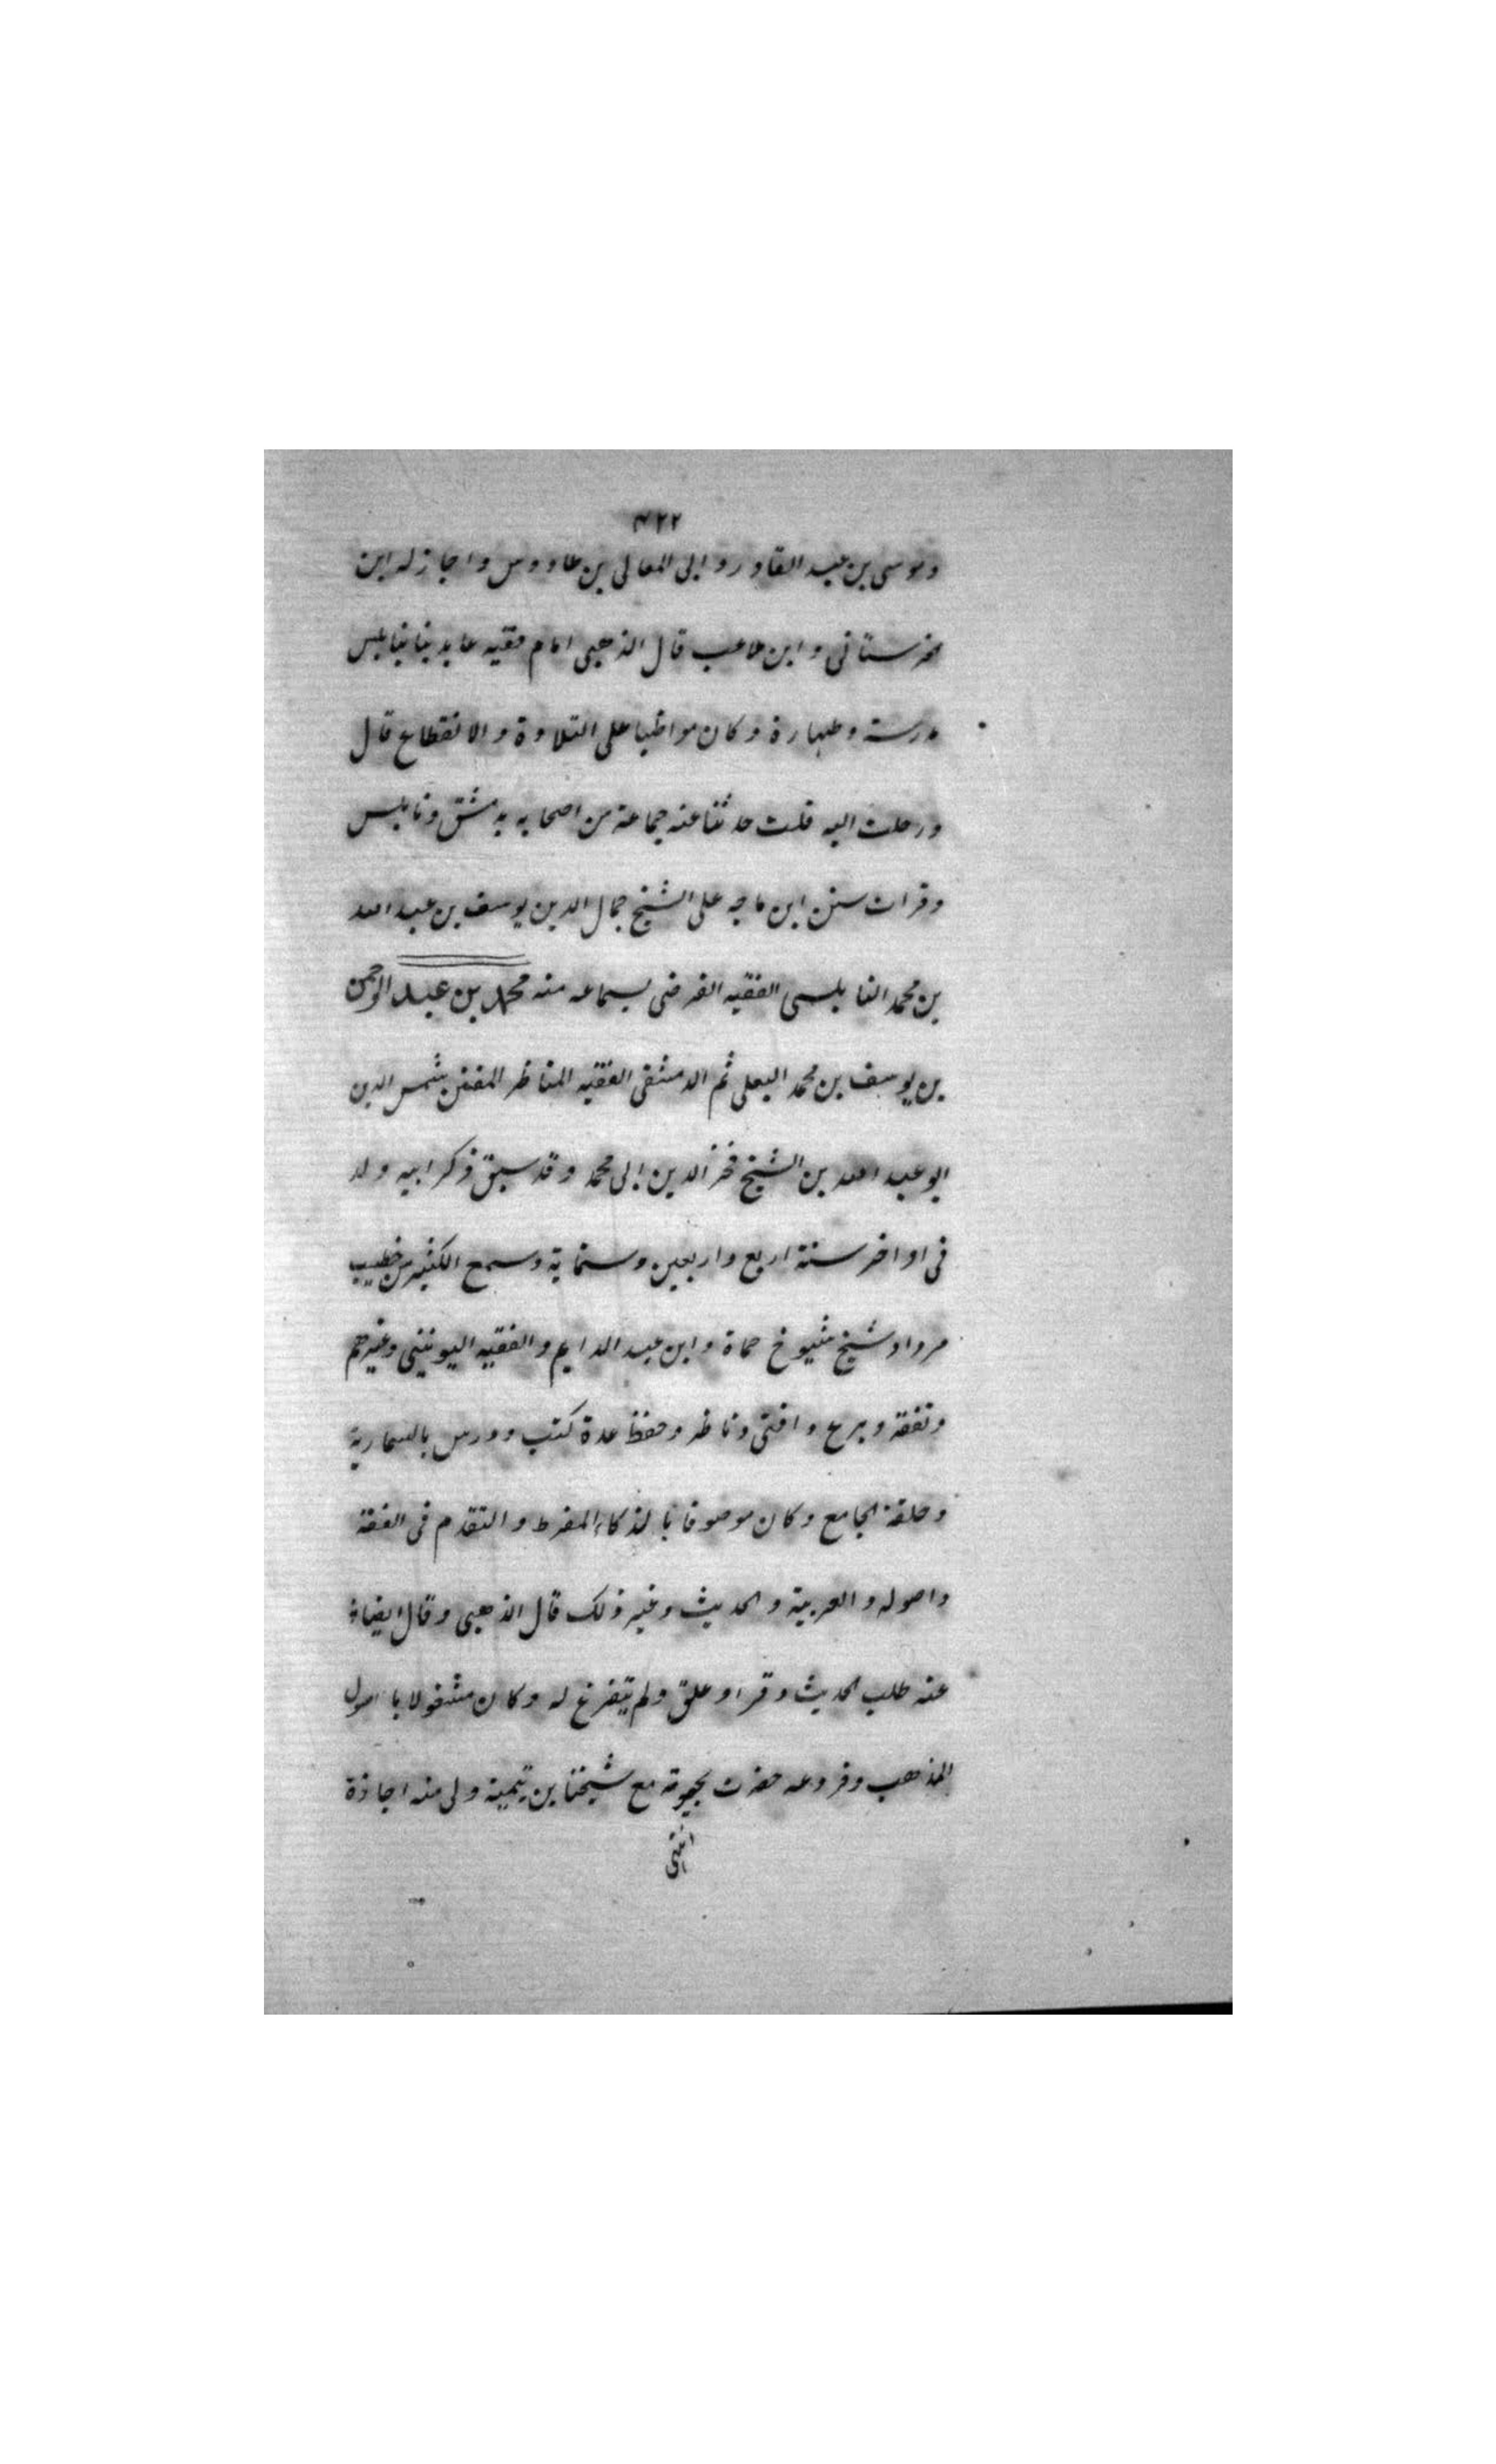 ٤٢٢
وموسى بن عبد القادر وابى المعالى بن طاووس واجاز له ابن
ابن ملاعب قال الذهبى امام فقيه عابد بنا بنابلس
مدرسة وطهارة وكان مواظبا على التلاوة والانقطاع قال
ورحلت اليه قلت حدثنا عنه جماعة من اصحابه بدمشق ونابلس
وقرات سنن ابن ماجه على الشيخ جمال الدين يوسف بن عبد الله
بن محمد النابلسى الفقيه الفرضى بسماعه منه محمد بن عبد الرحمن
بن يوسف بن محمد البعلى ثم الدمشقى الفقيه المناظر المفنن شمس الدين
ابو عبد الله بن الشيخ فخر الدين ابى محمد وقد سبق ذكر ابيه ولد
فى اواخر سنة اربع واربعين وستماية وسمع الكثير من خطيب
مردا وشيخ شيوخ حماة وابن عبد الدايم والفقيه اليونينى وغيرهم
وتفقه وبرع وافتى وناظر وحفظ عدة كتب ودرس بالمسمارية
وحلقة الجامع وكان موصوفا بالذكاء المفرط والتقدم فى الفقه
واصوله والعربية والحديث وغير ذلك قال الذهبى وقال ايضا
عنه طلب الحديث وقرا وعلق ولم يتفرغ له وكان مشغولا باصول
المذهب وفروعه حضرت بحوثه مع شيخنا بن تيمية ولى منه اجازة
انتهى